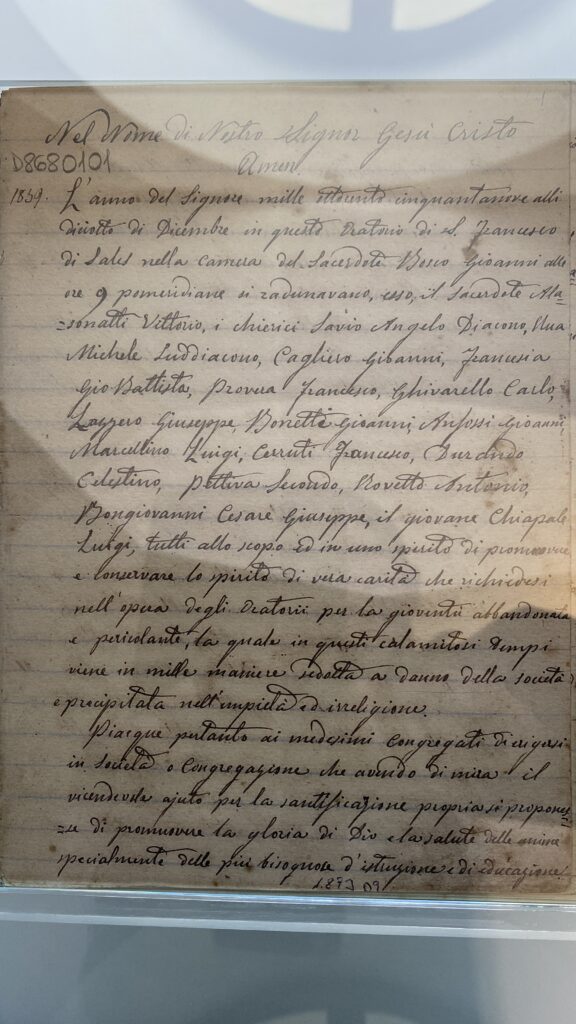 Nel Nome di Nostro Signor Gesù Cristo
Amen.
D8680101
1859. L'anno del Signore mille ottocento cinquantanove alli
diciotto di Dicembre in questo Oratorio di S. Francesco
di Sales nella camera del Sacerdote Bosco Gioanni alle
ore 9 pomeridiane si radunavano, esso, il Sacerdote Ala=
=sonatti Vittorio, i chierici Savio Angelo Diacono, Rua
Michele Suddiacono, Cagliero Gioanni, Francesia
Gio Battista, Provera Francesco, Ghivarello Carlo,
Lazzero Giuseppe, Bonetti Gioanni, Anfossi Gioanni,
Marcellino Luigi, Cerruti Francesco, Durando
Celestino, Pettiva Secondo, Rovetto Antonio,
Bongiovanni Cesare Giuseppe, il giovane Chiapale
Luigi, tutti allo scopo ed in uno spirito di promuovere
e conservare lo spirito di vera carità che richiedesi
nell'opera degli Oratorii per la gioventù abbandonata
e pericolante, la quale in questi calamitosi tempi
viene in mille maniere sedotta a danno della società
e precipitata nell'empietà ed irreligione.
Piacque pertanto ai medesimi Congregati di erigersi
in Società o Congregazione che avendo di mira il
vicendevole ajuto per la santificazione propria si propones=
=se di promuovere la gloria di Dio e la salute delle anime
specialmente delle più bisognose d'istruzione e di educazione